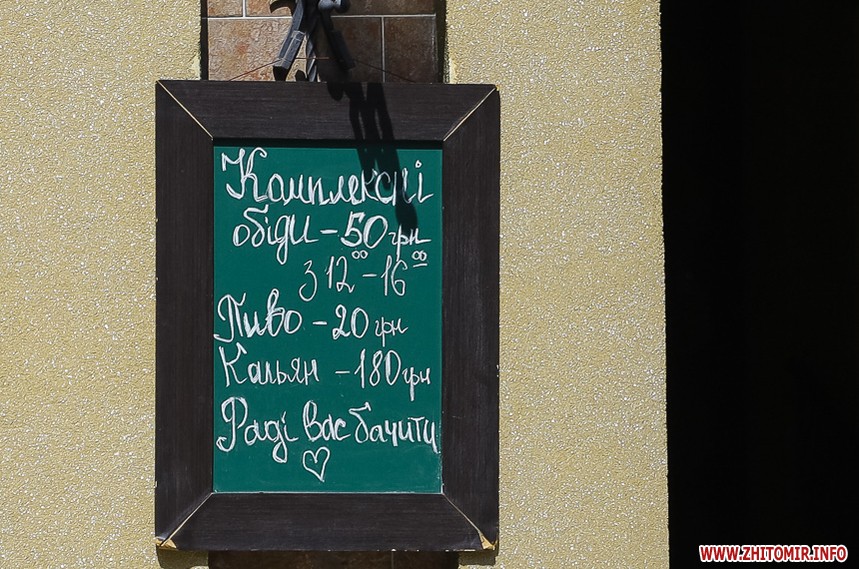 Комплексні
обіди – 50 грн
з 12⁰⁰ – 16⁰⁰
Пиво – 20 грн
Кальян – 180 грн
Раді вас бачити
♡
WWW.ZHITOMIR.INFO